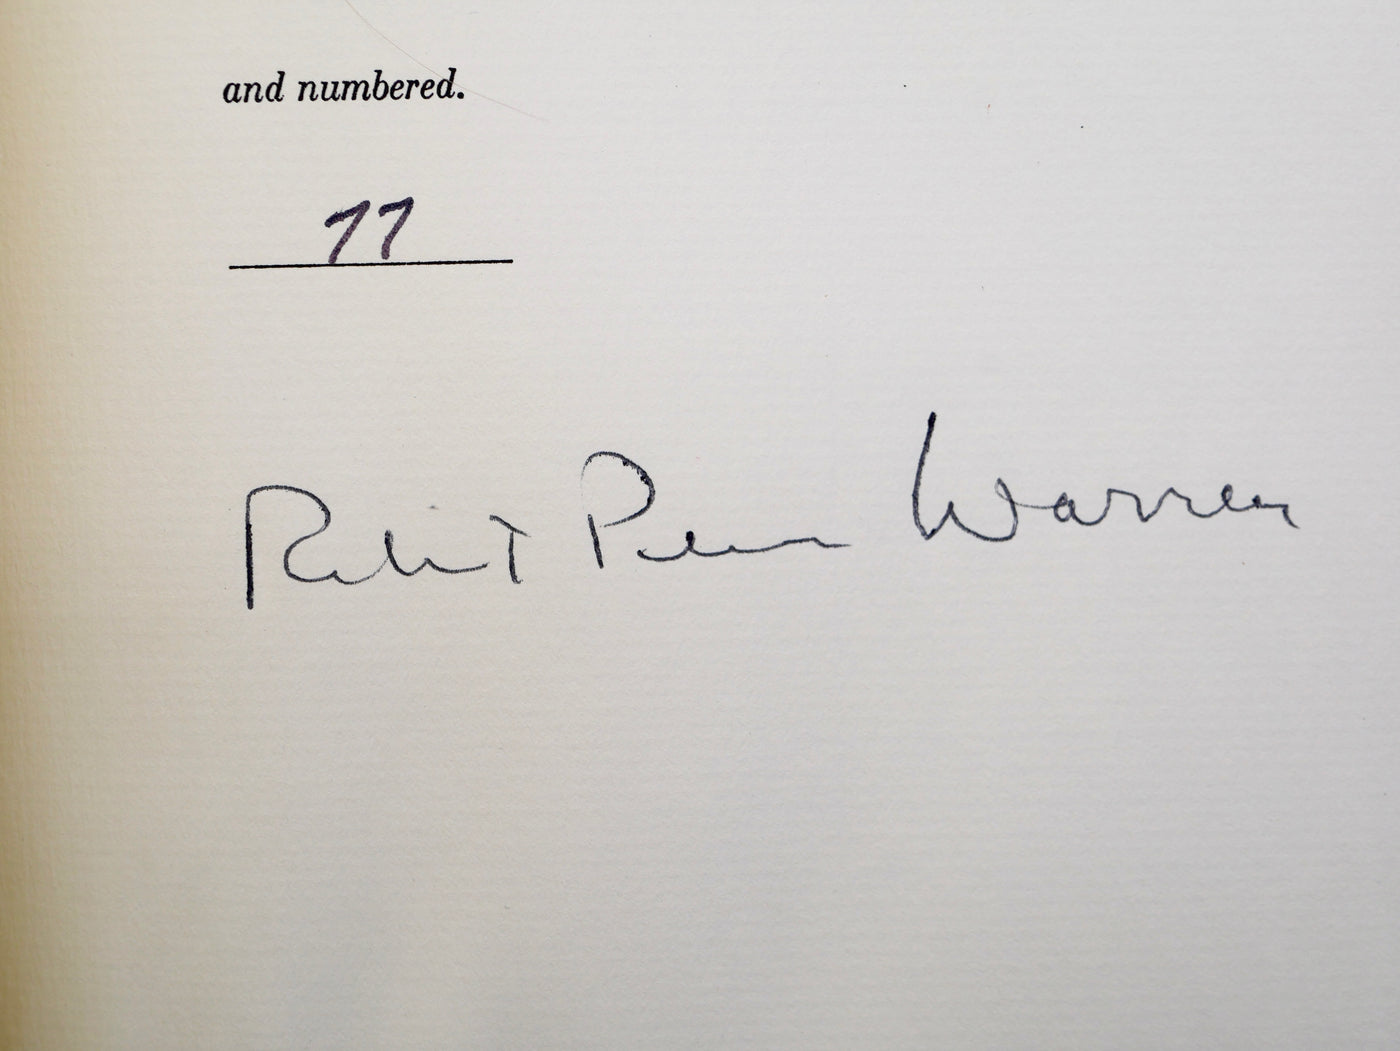 and numbered.
77
Robert Penn Warren